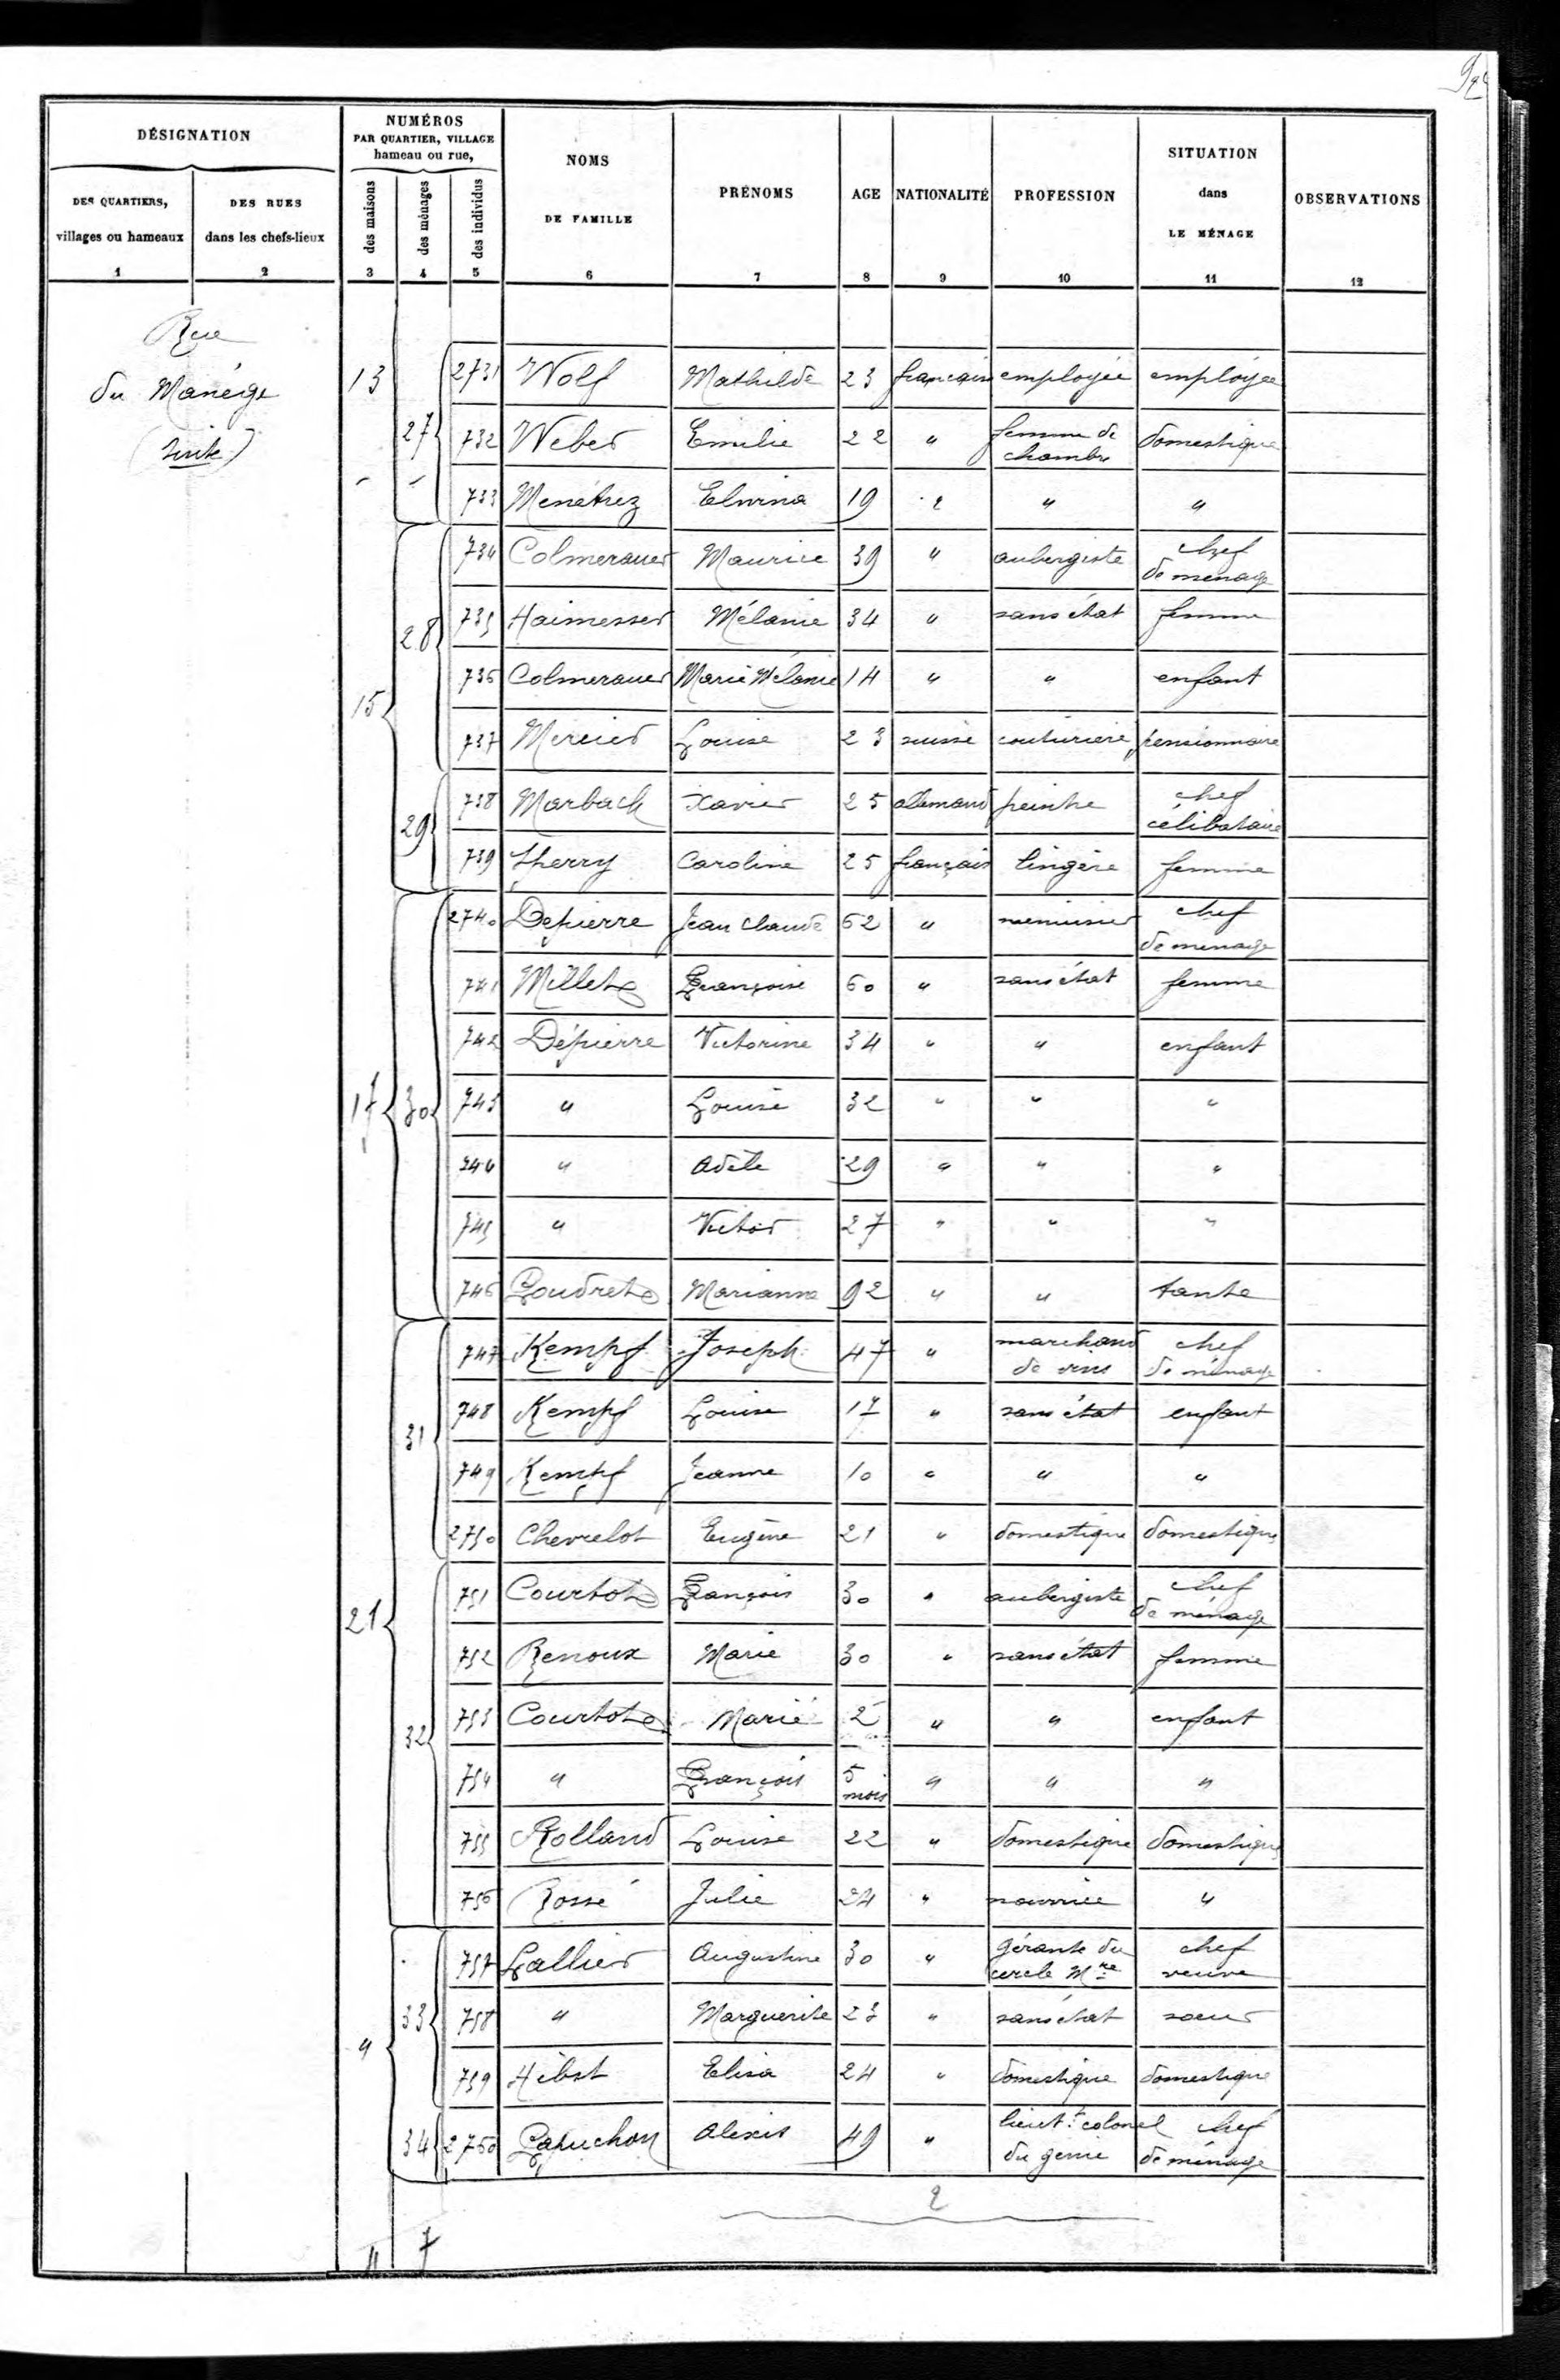 DÉSIGNATION
NUMÉROS
PAR QUARTIER, VILLAGE
hameau ou rue,
NOMS
DE FAMILLE
PRÉNOMS
AGE
NATIONALITÉ
PROFESSION
SITUATION
dans
LE MÉNAGE
OBSERVATIONS
DES QUARTIERS,
villages ou hameaux
DES RUES
dans les chefs-lieux
des maisons
des ménages
des individus
1 2 3 4 5 6 7 8 9 10 11 12
Rue
du Manège
(suite)
13 27 2731 Wolf Mathilde 23 française employée employée
732 Weber Emilie 22 " femme de chambre domestique
733 Menétrez Elwina 19 " " "
15 28 734 Colmerauer Maurice 39 " aubergiste chef de ménage
735 Haimesser Mélanie 34 " sans état femme
736 Colmerauer Marie Mélanie 14 " " enfant
737 Mercier Louise 23 suisse couturière pensionnaire
29 738 Marbach Xavier 25 allemand peintre chef célibataire
739 Therry Caroline 25 français lingère femme
17 30 2740 Depierre Jean Claude 62 " menuisier chef de ménage
741 Millet Françoise 60 " sans état femme
742 Dépierre Victorine 34 " " enfant
743 " Louise 32 " " "
744 " Adèle 29 " " "
745 " Victor 27 " " "
746 Goudret Marianne 92 " " tante
21 31 747 Kempf Joseph 47 " marchand de vins chef de ménage
748 Kempf Louise 17 " sans état enfant
749 Kempf Jeanne 10 " " "
2750 Chevrelot Eugène 21 " domestique domestique
32 751 Courtot François 30 " aubergiste chef de ménage
752 Renoux Marie 30 " sans état femme
753 Courtot Marie 2 " " enfant
754 " François 5 mois " " "
755 Rolland Louise 22 " domestique domestique
756 Rossé Julie 24 " nourrice "
" 33 757 Lallier Augustine 30 " gérante du cercle Mre chef veuve
758 " Marguerite 23 " sans état soeur
759 Hibst Elisa 24 " domestique domestique
34 2760 Papuchon Alexis 49 " lieut.t colonel du genie chef de ménage
2
4 7